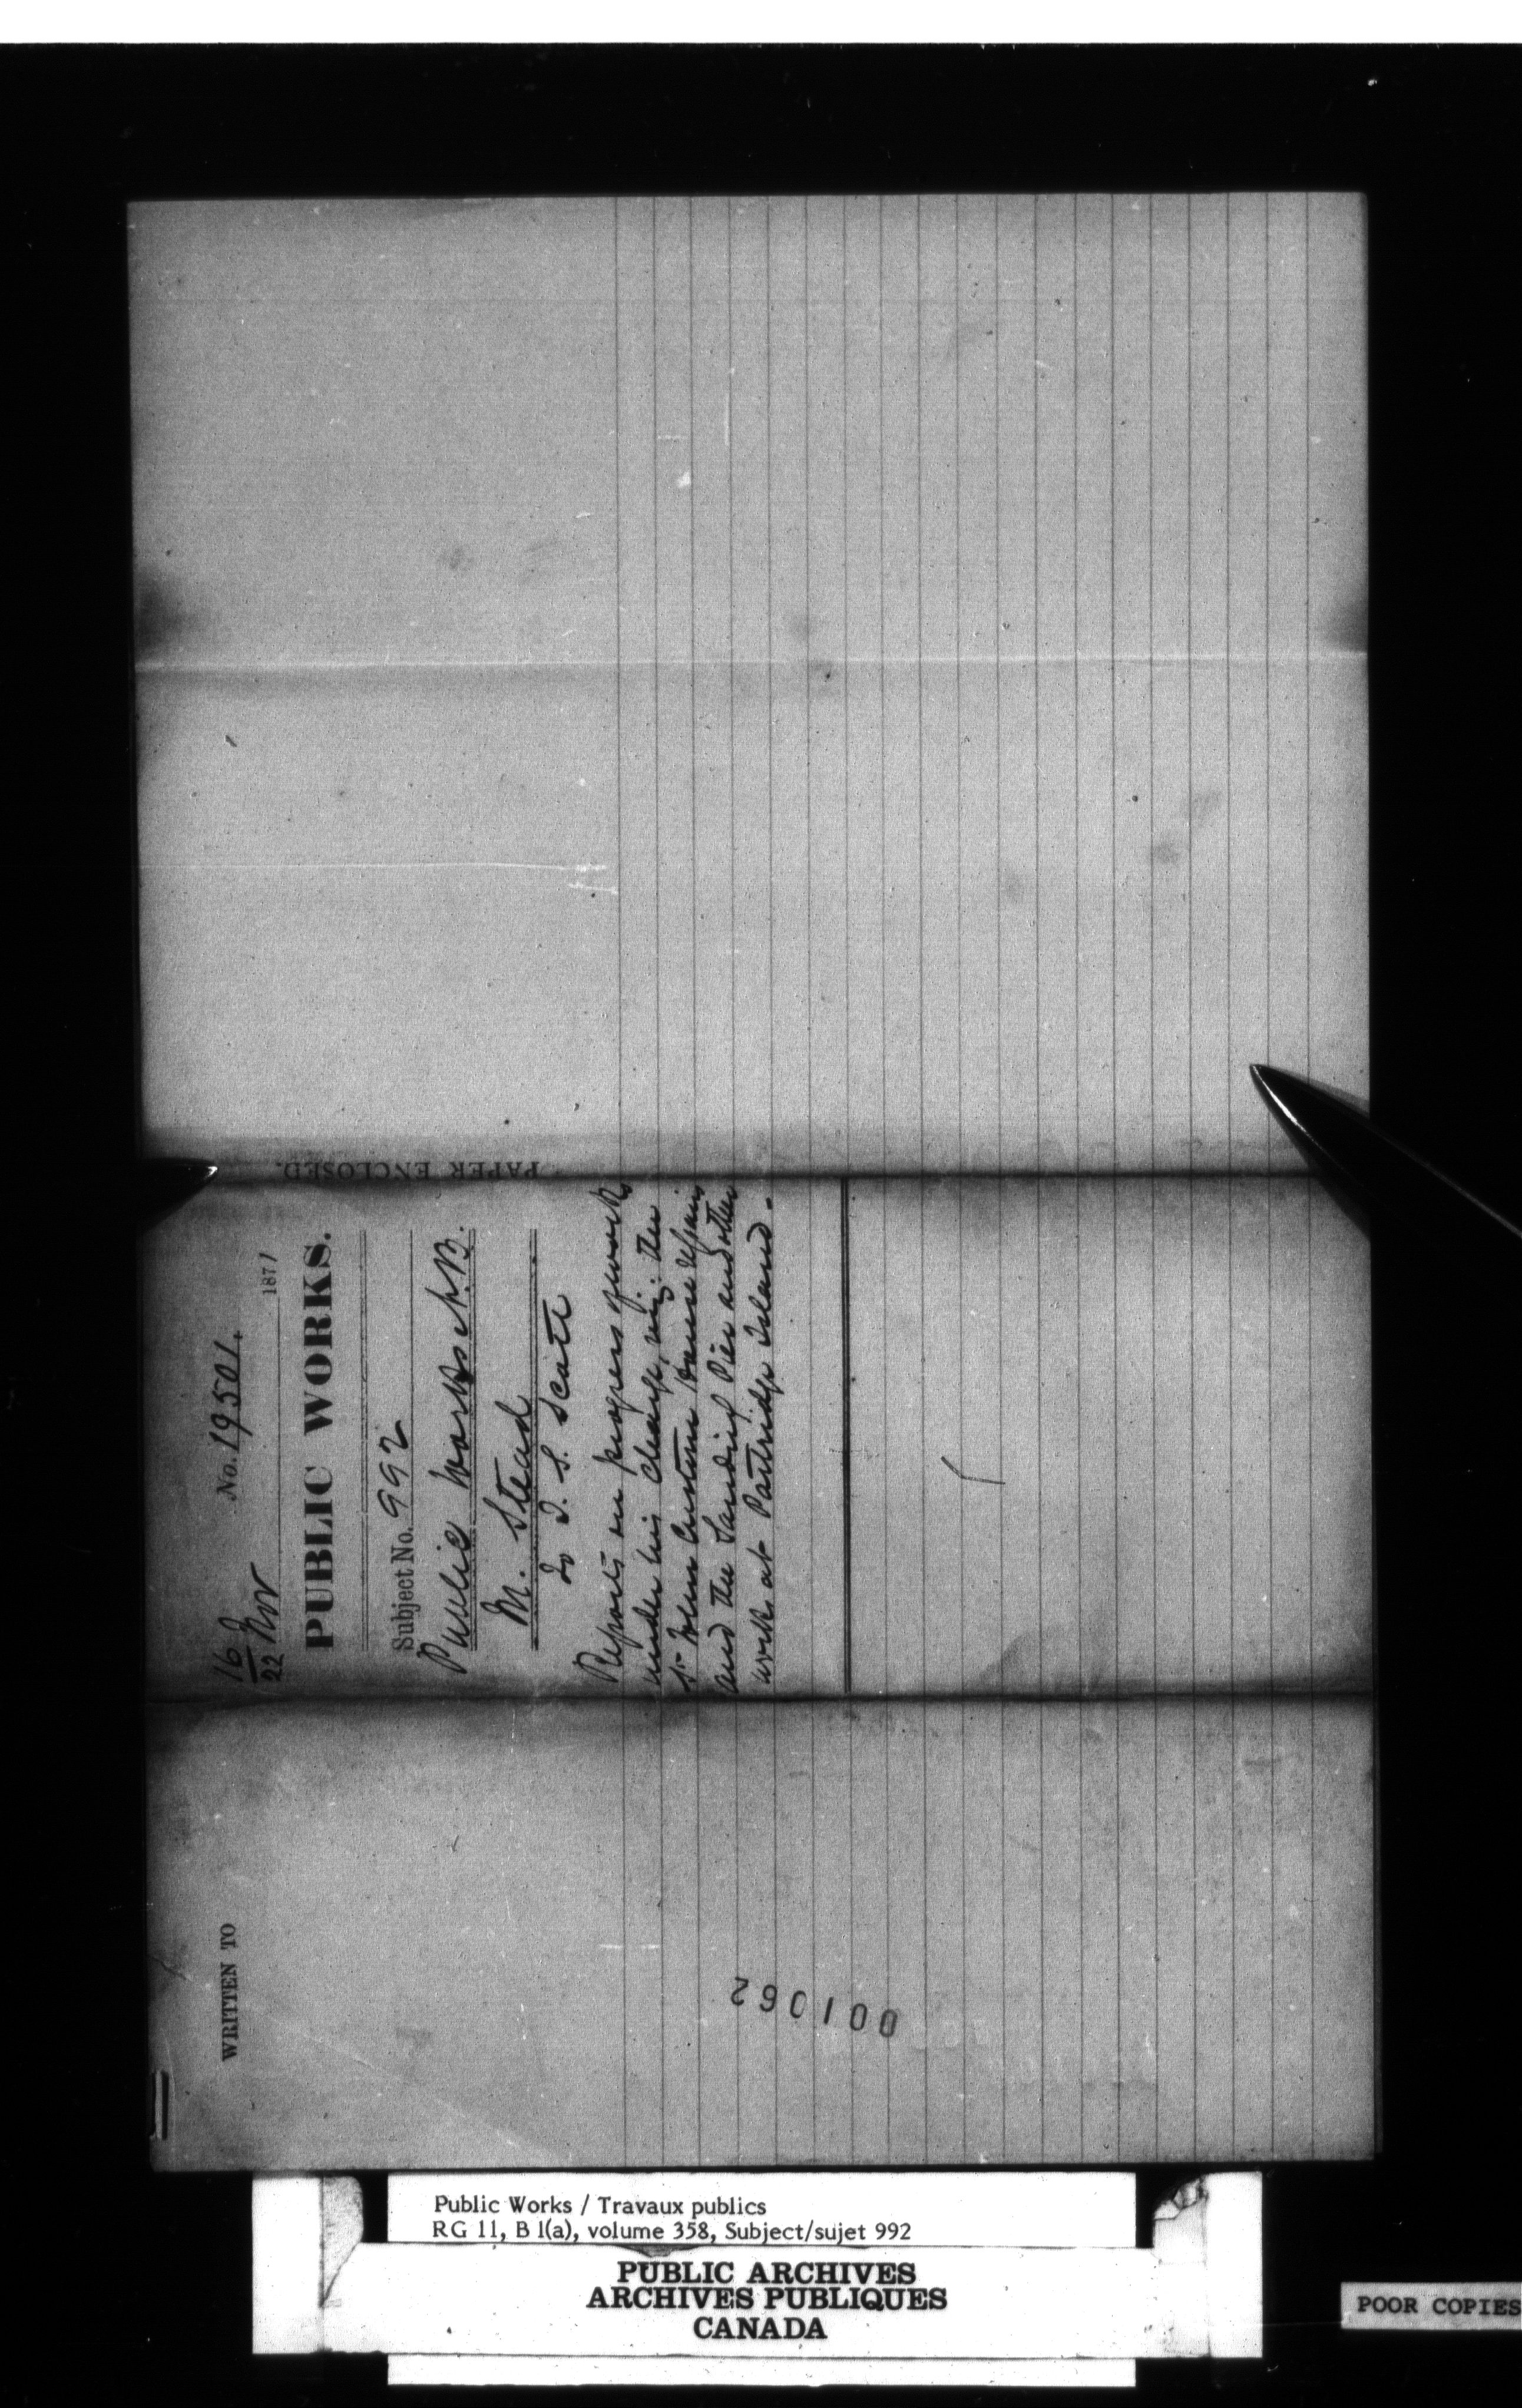 PAPER ENCLOSED.
16/22 Nov No. 19501. 1871
PUBLIC WORKS.
Subject No. 992
Public Works N.B.
M. Stead
To T. S. Scott
Reports on progress of works
under his charge, viz: the
St John Custom House repairs
and the Landing Pier and other
works at Partridge Island.
WRITTEN TO
001062
Public Works / Travaux publics
RG 11, B 1(a), volume 358, Subject/sujet 992
PUBLIC ARCHIVES
ARCHIVES PUBLIQUES
CANADA
POOR COPIES